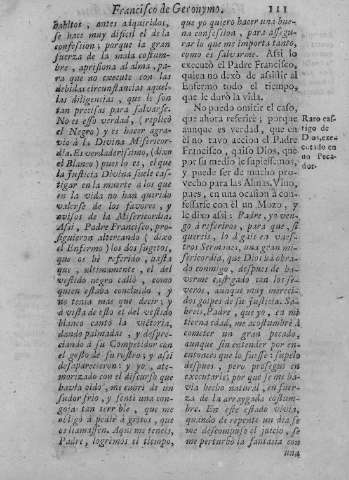 Francisco de Geronymo. 111
habitos, antes adquiridos,
se hace muy dificil el de la
confession; porque la gran
fuerza de la mala costum-
bre, aprisiona al alma, pa-
ra que no execute con las
debidas circunstancias aque-
llas diligencias, que le son
tan precisas para salvarse.
No es esso verdad, (replicò
el Negro) y es hacer agra-
vio à la Divina Misericor-
dia. Es verdaderissimo, (dixo
el Blanco) pues lo es, el que
la Justicia Divina suele cas-
tigar en la muerte à los que
en la vida no han querido
valerse de los favores, y
avisos de la Misericordia.
Assi, Padre Francisco, pro-
siguieron altercando (dixo
el Enfermo) los dos sugetos,
que os hè referido, hasta
que, ultimamente, el del
vestido negro callò, como
quien estaba concluido, y
no tenia mas que decir; y
à vista de esto el del vestido
blanco cantò la victoria,
dando palmadas, y despre-
ciando à su Competidor con
el gesto de su rostro; y assi
desaparecieron: y yo, ate-
morizado con el discurso que
havia oìdo, me cubrì de un
sudor frio, y sentì una con-
goja tan terrible, que me
obligò à pedir à gritos, que
os llamassen. Aqui me teneis,
Padre, logrèmos el tiempo,
que yo quiero hacer una bue-
na confession, para assegu-
rar lo que me importa tanto,
como es salvarme. Assi lo
executò el Padre Francisco,
quien no dexò de assistir al
Enfermo todo el tiempo,
que le durò la vida.
No puedo omitir el caso,
que ahora referirè; porque
aunque es verdad, que en
èl no tuvo accion el Padre
Francisco, quiso Dios, que
por su medio le supiessemos,
y puede ser de mucho pro-
vecho para las Almas. Vino,
pues, en una ocasion à con-
fessarse con èl un Mozo, y
le dixo assi: Padre, yo ven-
go à referiros, para que, si
quereis, lo digais en vues-
tros Sermones, una gran mi-
sericordia, que Dios ha obra-
do conmigo, despues de ha-
verme castigado con los se-
veros, aunque muy mereci-
dos golpes de su justicia. Sa-
breis, Padre, que yo, en mi
tierna edad, me acostumbrè à
cometer un gran pecado,
aunque sin entender por en-
tonces que lo fuesse: supelo
despues, pero proseguì en
executarle, por que se me ha-
via hecho natural, en fuer-
za de la arraygada costum-
bre. En este estado vivìa,
quando de repente un dia se
me descompuso el juicio, se
me perturbò la fantasìa con
una
Raro cas-
tigo de
Dios, exe-
cutado en
un Peca-
dor.